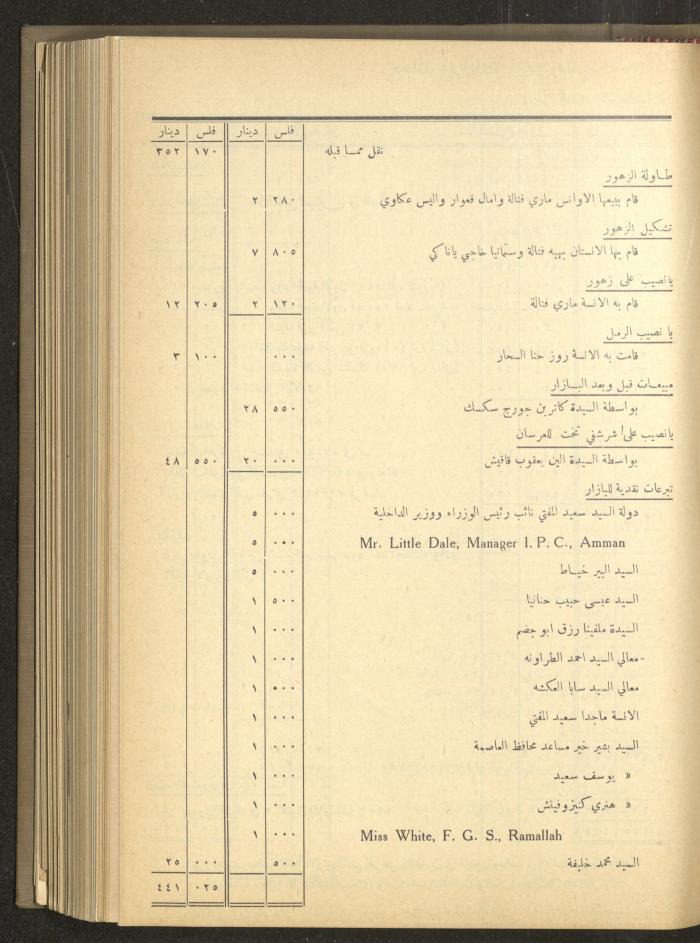 فلس دينار فلس دينار
نقل مما قبله ١٧٠ ٣٥٢
طاولة الزهور
قام ببيعها الاوانس ماري فتالة وامال قعوار واليس عكاوي ٢٨٠ ٢
تشكيل الزهور
قام بها الانستان بهيه فتالة وستمانيا خاجي ياناكي ٨٠٥ ٧
يانصيب على زهور
قام به الانسة ماري فتالة ١٢٠ ٢ ٢٠٥ ١٢
يا نصيب الرمل
قامت به الانسة روز حنا السحار ٠٠٠ ١٠٠ ٣
مبيعات قبل وبعد البازار
بواسطة السيدة كاترين جورج سكسك ٥٥٠ ٢٨
يانصيب على شرشفي تخت للعرسان
بواسطة السيدة الين يعقوب قاقيش ٠٠٠ ٢٠ ٥٥٠ ٤٨
تبرعات نقدية للبازار
دولة السيد سعيد المفتي نائب رئيس الوزراء ووزير الداخلية ٠٠٠ ٥
Mr. Little Dale, Manager I. P. C., Amman ٠٠٠ ٥
السيد البير خياط ٠٠٠ ٥
السيد عيسى حبيب حنانيا ٥٠٠ ١
السيدة ملفينا رزق ابو جضم ٠٠٠ ١
معالي السيد احمد الطراونه ٠٠٠ ١
معالي السيد سابا العكشه ٠٠٠ ١
الانسة ماجدا سعيد المفتي ٠٠٠ ١
السيد بشير خير مساعد محافظ العاصمة ٠٠٠ ١
» يوسف سعيد ٠٠٠ ١
» هنري كنيزوفيتش ٠٠٠ ١
Miss White, F. G. S., Ramallah ٠٠٠ ١
السيد محمد خليفة ٥٠٠ ٠٠٠ ٢٥
٠٢٥ ٤٤١